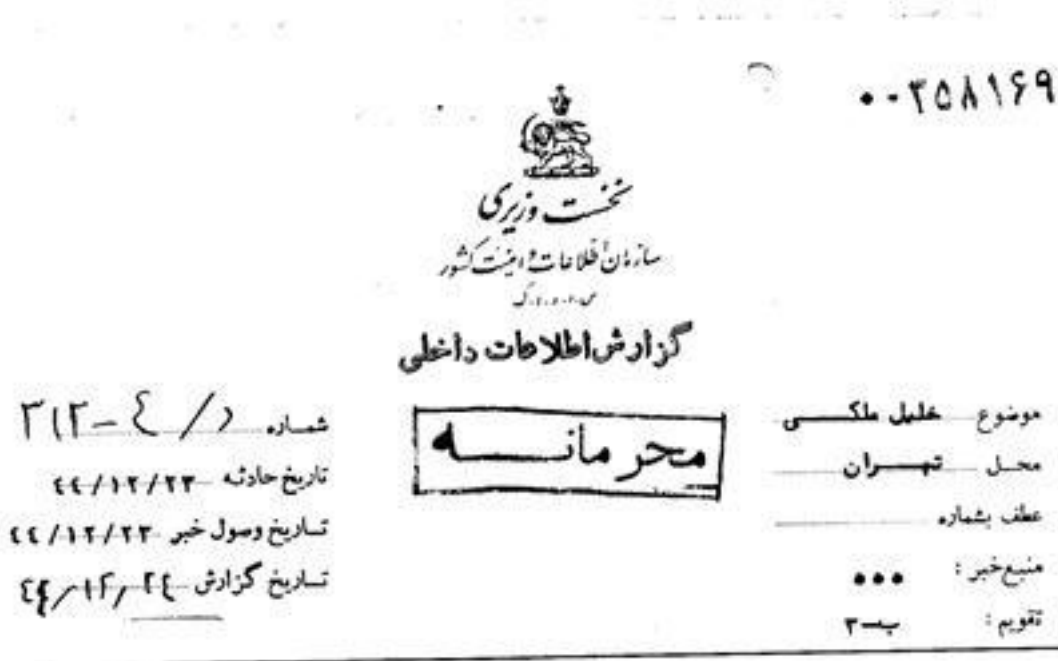 ۰۰۳۵۸۱۶۹
نخست وزیری
سازمان اطلاعات و امنیت کشور
س.ا.و.ا.ک
گزارش اطلاعات داخلی
موضوع خلیل ملکی
محل تهران
عطف بشماره
منبع خبر : •••
تقویم : ب-۳
محرمانه
شماره ۳۱۲-٤/د
تاریخ حادثه ٤٤/۱۲/۲۳
تاریخ وصول خبر ٤٤/۱۲/۲۳
تاریخ گزارش ٤٤/۱۲/۲٤